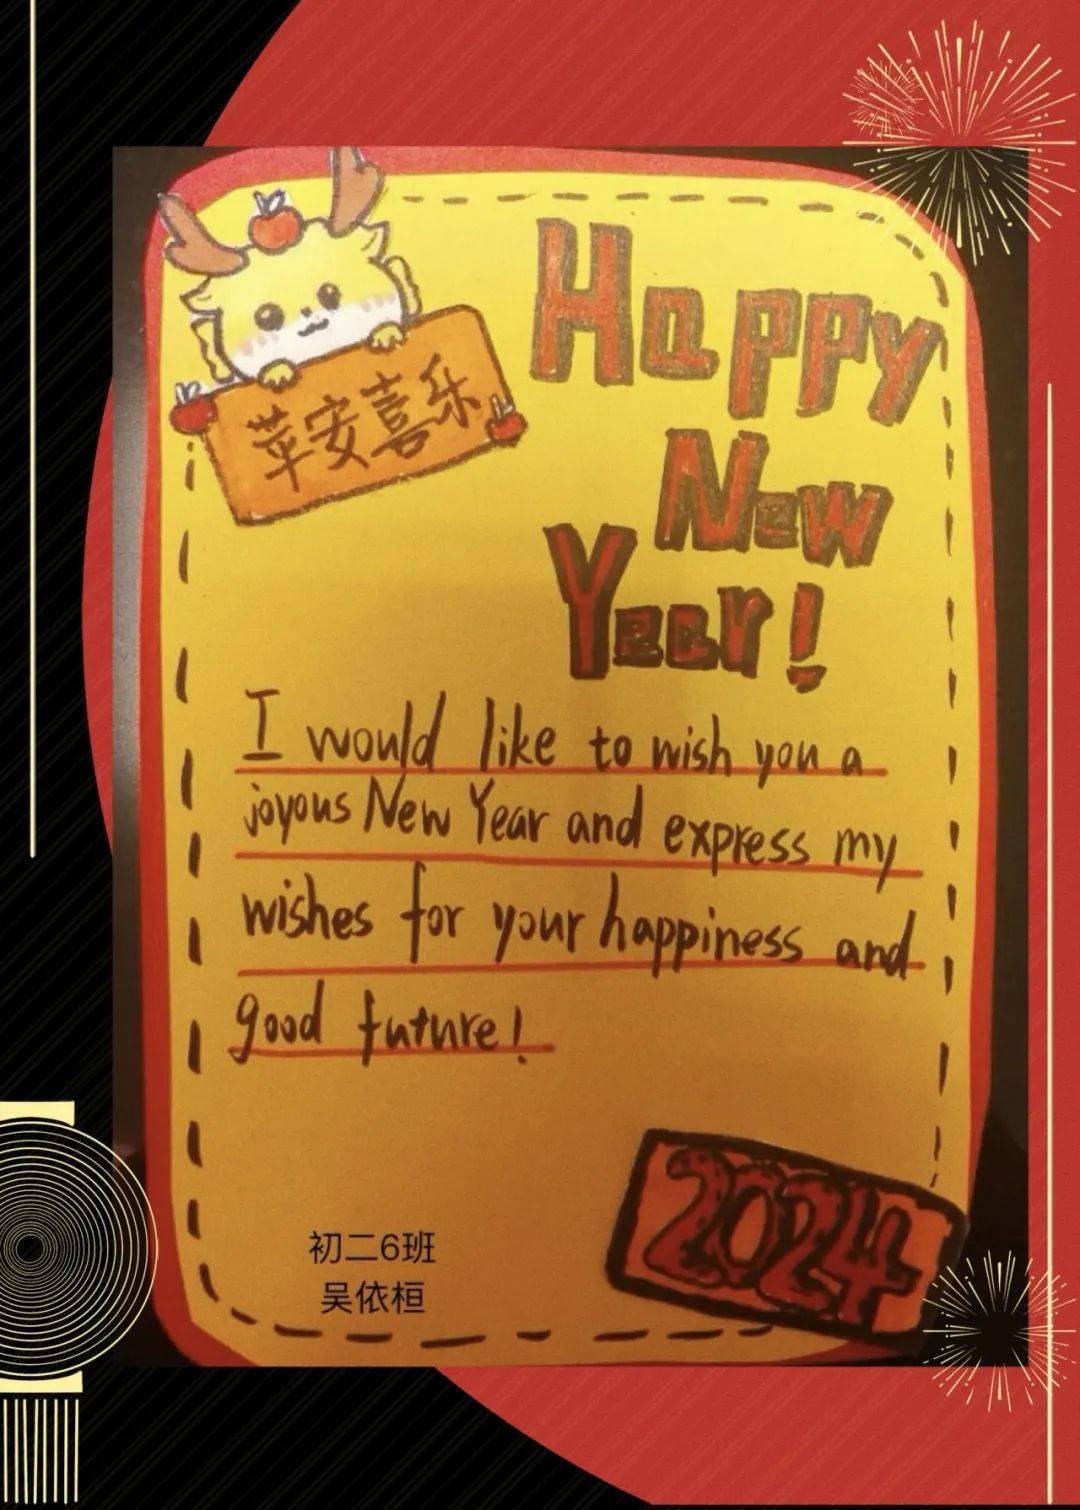 苹安喜乐
Happy
New
Year!
I would like to wish you a
joyous New Year and express my
wishes for your happiness and
good future!
2024
初二6班
吴依桓